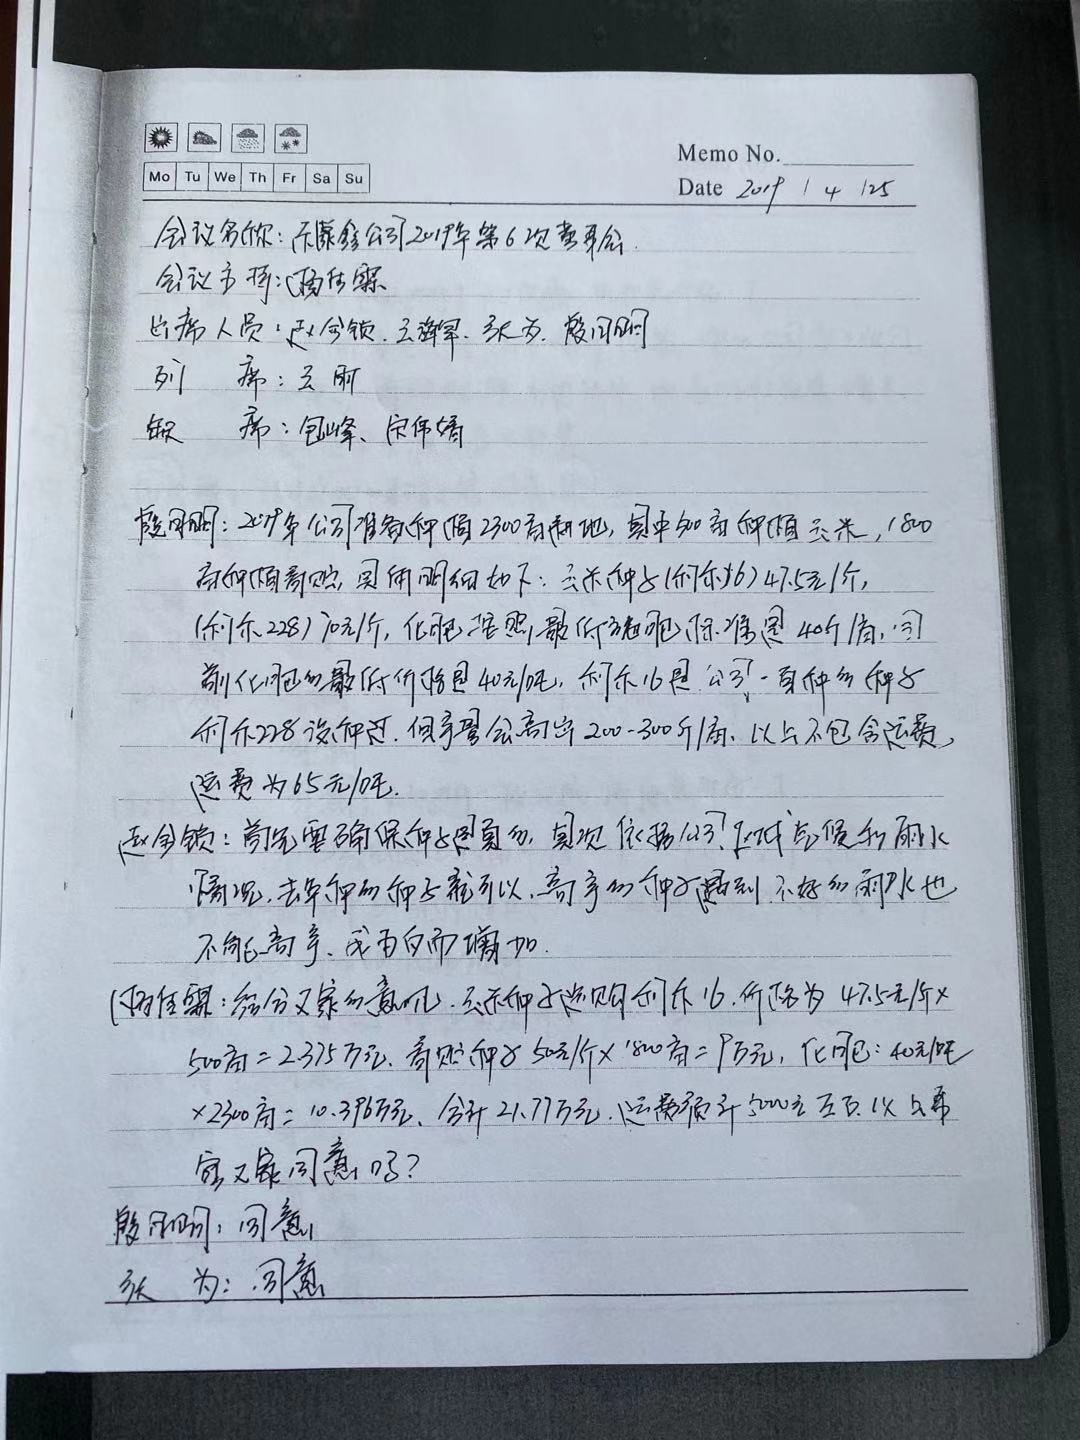 Mo Tu We Th Fr Sa Su
Memo No.
Date 2019 / 4 / 25
会议名称: 禾泰鑫公司2019年第6次董事会.
会议主持: 杨佳霖
出席人员: 赵金锁. 王海军. 张为. 殷月明
列 席: 王丽
缺 席: 包峰、宋伟婧
殷月明: 2019年公司准备种植2300亩耕地, 其中500亩种植玉米, 1800
亩种植 具体明细如下: 玉米种子(利禾16) 47.5元/斤,
(利禾228) 70元/斤, 化肥按照最低施肥标准是40斤/亩, 目
前化肥的最低价格是40元/吨, 利禾16是公司一直种的种子
利禾228没种过. 但产量会高出200-300斤/亩. 以上不包含运费,
运费为65元/吨.
赵金锁: 首先要确保种子是真的, 其次依据公司区域气候和雨水
情况, 去年种的种子就可以, 高产的种子遇到不好的雨水也
不能高产、成本白而增加.
杨佳霖: 综合大家的意见. 玉米种子选购利禾16. 价格为 47.5元/斤×
500亩=2.375万元. 种子 50元/斤×1800亩=9万元, 化肥: 40元/吨
×2300亩=10.396万元、合计21.77万元. 运费预计5000元左右. 以上 
定大家同意吗?
殷月明: 同意
张 为: 同意